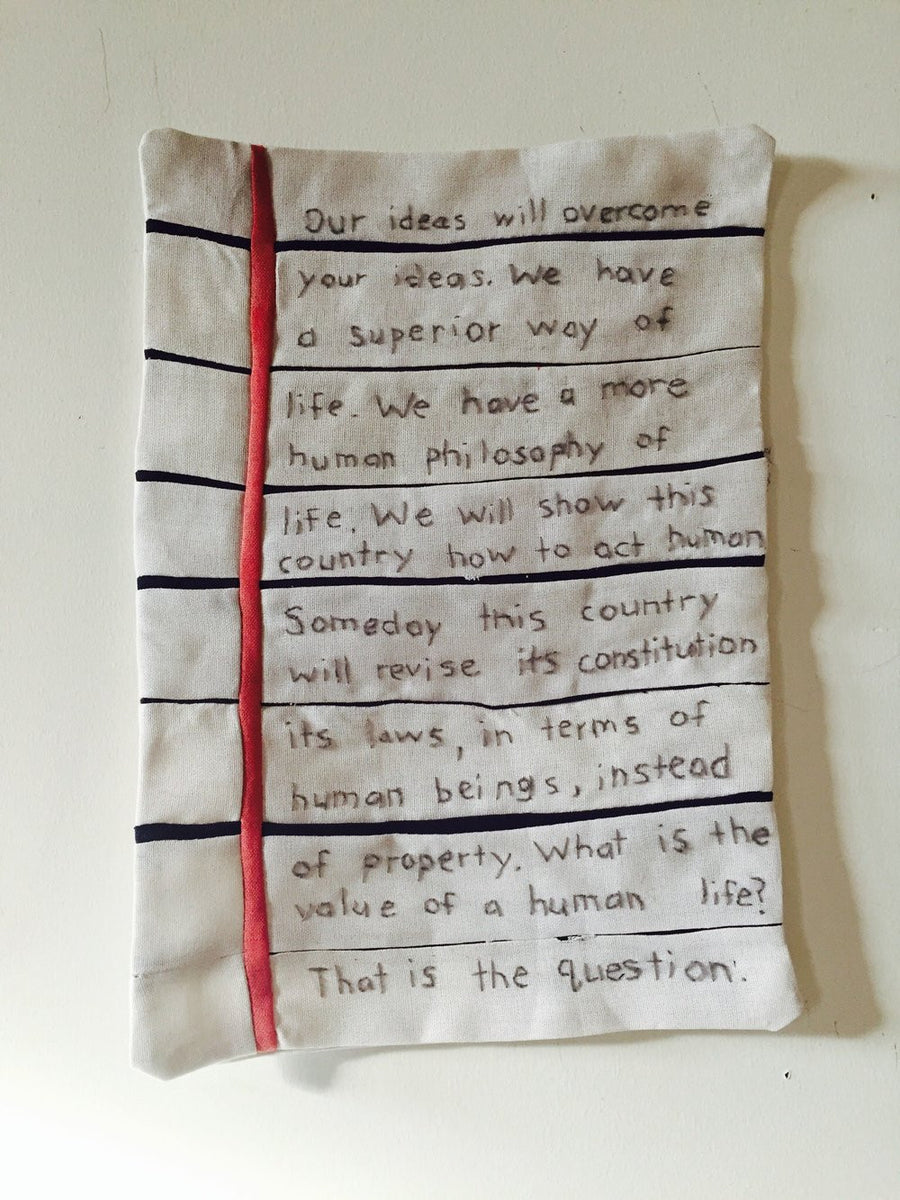 Our ideas will overcome
your ideas. We have
a superior way of
life. We have a more
human philosophy of
life. We will show this
country how to act human
Someday this country
will revise its constitution
its laws, in terms of
human beings, instead
of property. What is the
value of a human life?
That is the question.